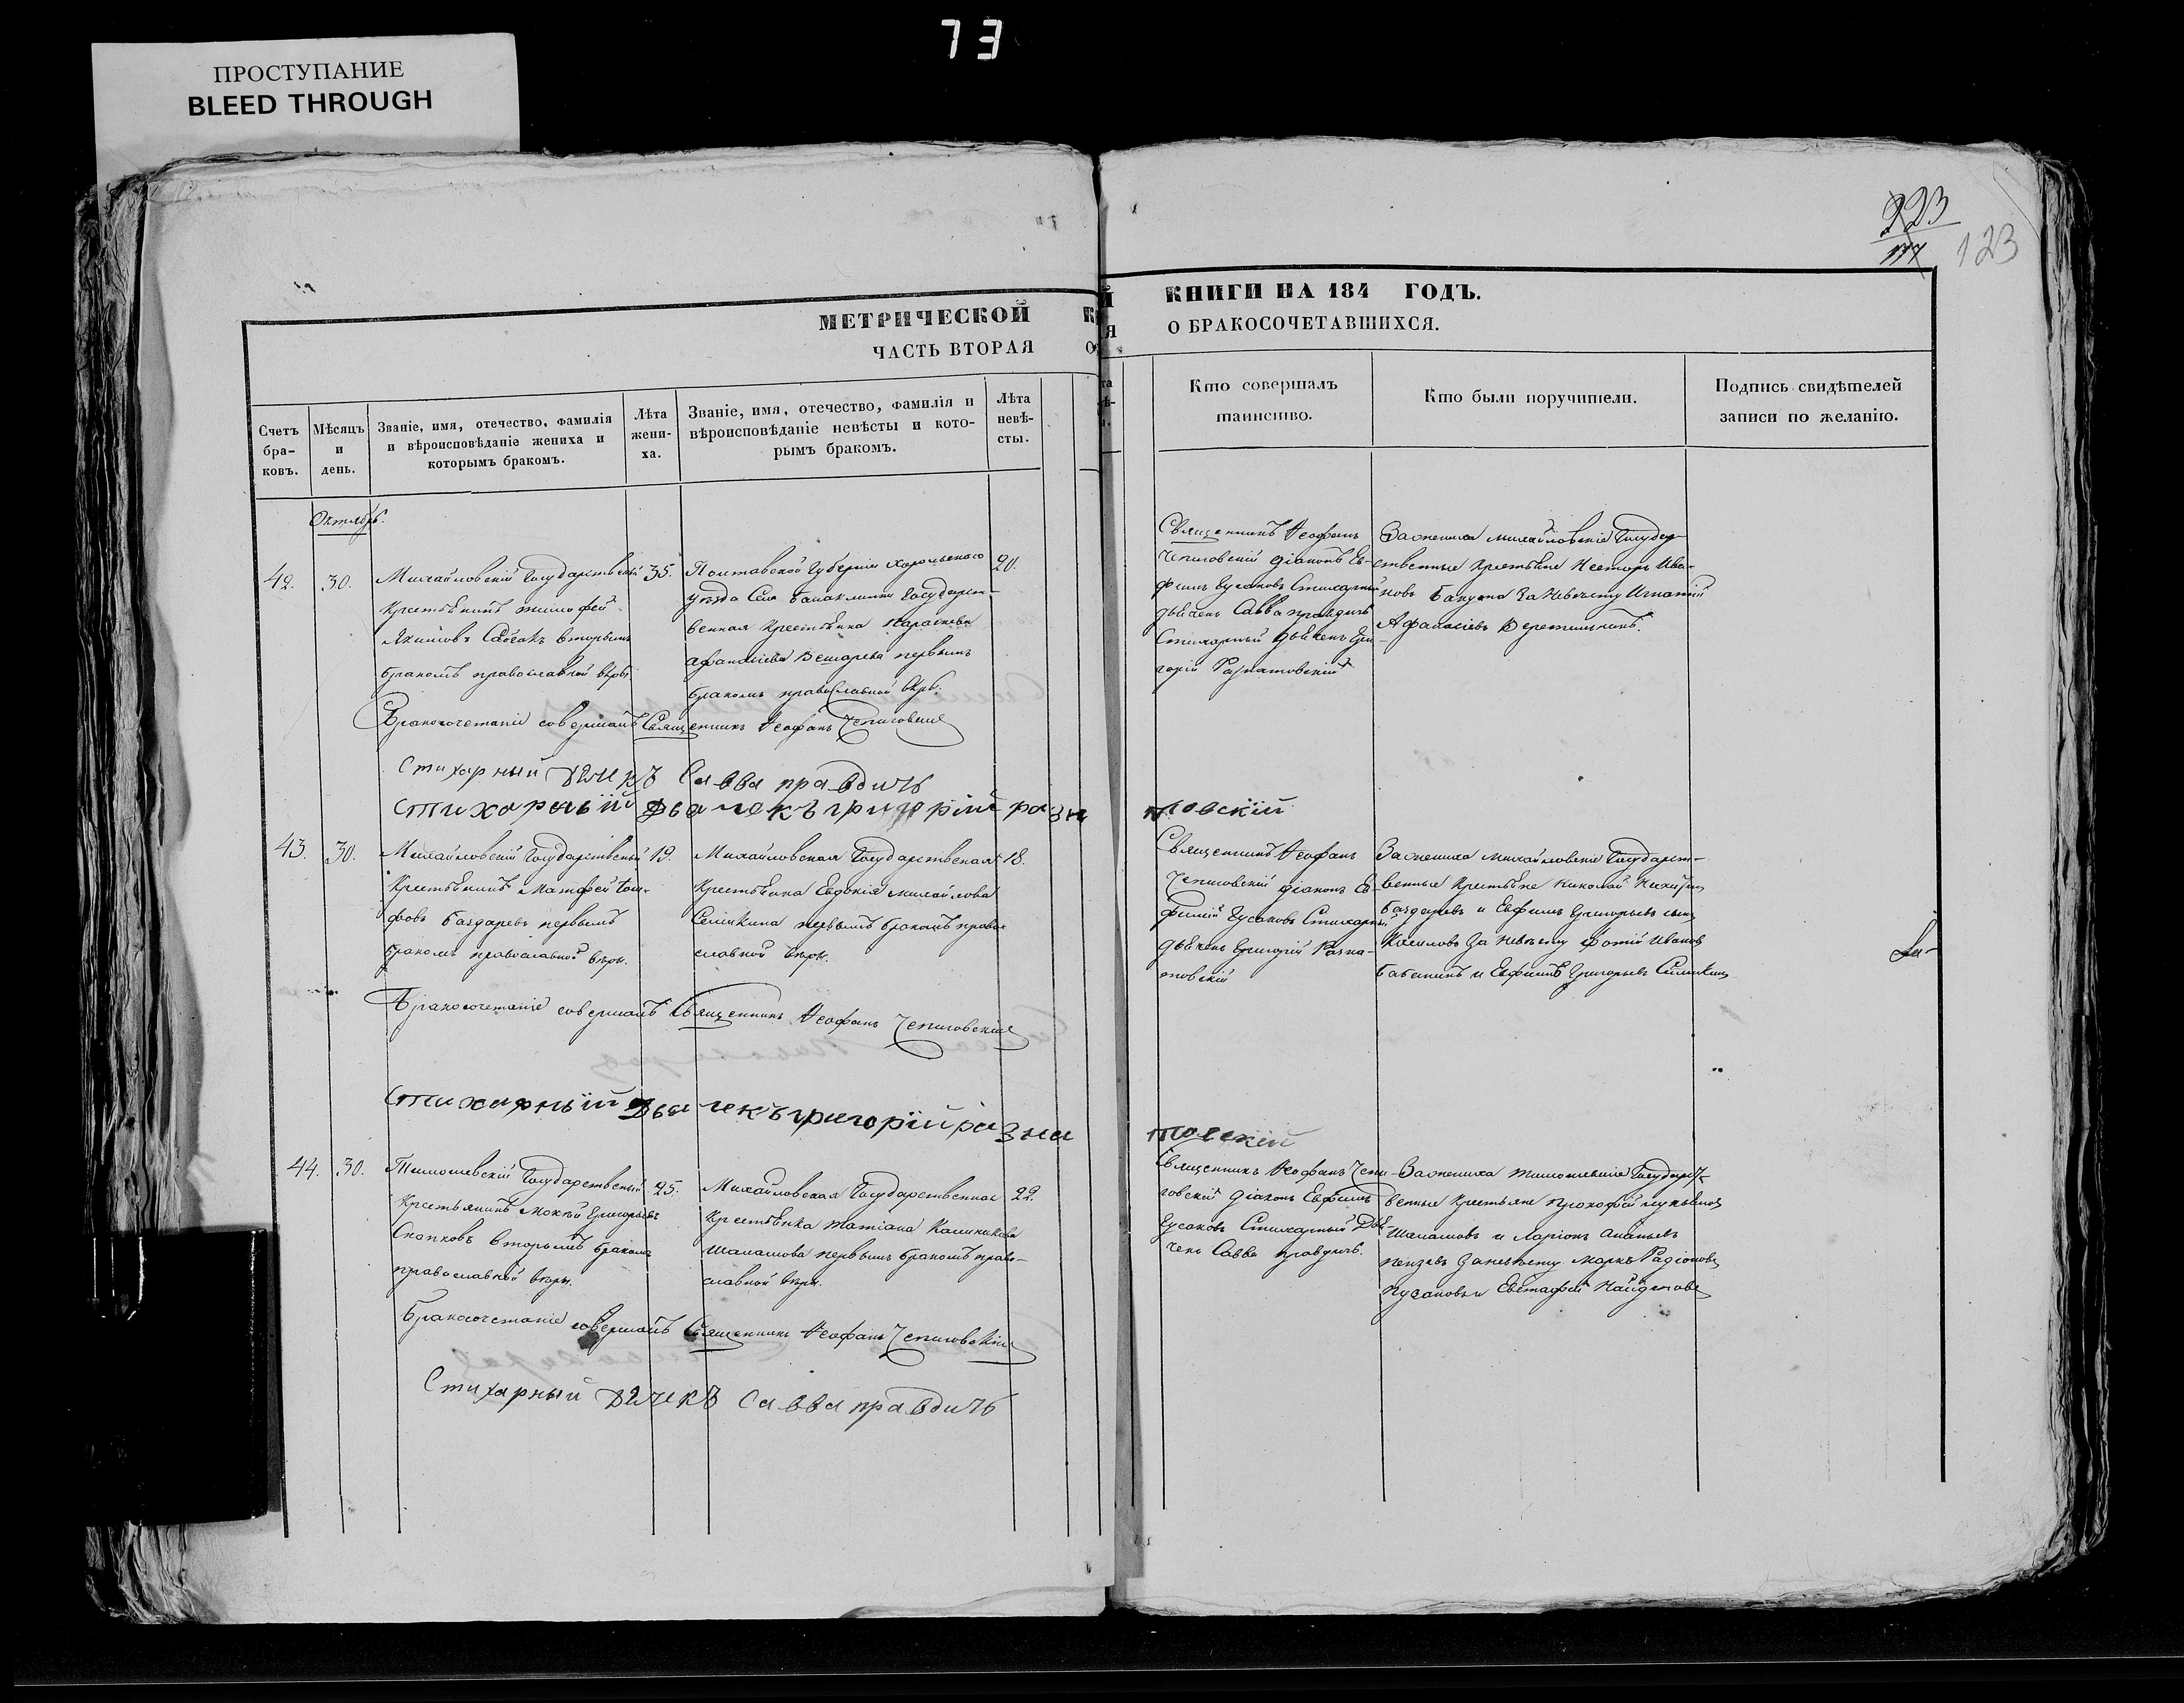 73
ПРОСТУПАНИЕ
BLEED THROUGH
223
123
МЕТРИЧЕСКОЙ
КНИГИ НА 184 ГОДЪ.
ЧАСТЬ ВТОРАЯ
О БРАКОСОЧЕТАВШИХСЯ.
Счетъ бра-
ковъ.
Мѣсяцъ
и
день.
Званіе, имя, отечество, фамилія
и вѣроисповѣданіе жениха и
которымъ бракомъ.
Лѣта
жени-
ха.
Званіе, имя, отечество, фамилія и
вѣроисповѣданіе невѣсты и кото-
рымъ бракомъ.
Лѣта
невѣ-
сты.
Кто совершалъ
таинство.
Кто были поручители.
Подпись свидѣтелей
записи по желанію.
Октябрь.
42.
30.
Михайловскій Государственый
Крестьянинъ Тимофей
Якимовъ вторымъ
бракомъ православной вѣры
35.
Полтавской Губерніи Хорольскаго
уѣзда Села Государст-
венная Крестьянка Параскева
Афанасіева первымъ
бракомъ православной вѣры.
20.
Священникъ Феофанъ
Чепиговскій діаконъ Ев-
фимъ Гусаковъ Стихарный
дьячекъ Савва Правдичъ
Стихарный дьячекъ Гри-
горій Разнатовскій
За жениха Михайловскіе Государ-
ственные Крестьяне Несторъ Ива-
новъ За невѣсту Игнатій
Афанасіевъ
Бракосочетаніе совершалъ Священникъ Феофанъ Чепиговскій
Стихарный дячекъ Савва Правдичъ
Стихарный дьячекъ григорій разна
товскій
43.
30.
Михайловскій Государственый
Крестьянинъ Матфей
Баздаревъ первымъ
бракомъ православной вѣры.
19.
Михайловская Государственая
Крестьянка Евдокія Михайлова
Селихина первымъ бракомъ право-
славной вѣры.
18.
Священникъ Феофанъ
Чепиговскій діаконъ Ев-
фимій Гусаковъ Стихарный
дьячекъ Григорій Разна-
товскій
За жениха Михайловскіе Государст-
венные Крестьяне Николай
Баздаревъ и Евфимъ Григорьевъ сынъ
За невѣсту Фотій Ивановъ
Бабанинъ и Евфимъ Григорьевъ Селихинъ
Бракосочетаніе совершалъ Священникъ Феофанъ Чепиговскій
Стихарный дьячекъ григорій разна
товскій
44.
30.
Тимошевскій Государственый
Крестьянинъ Мокѣй Григорьевъ
Снопковъ вторымъ бракомъ
православной вѣры.
25.
Михайловская Государственная
Крестьянка Татіана
Шалашова первымъ бракомъ право-
славной вѣры.
22.
Священникъ Феофанъ Чепи-
говскій діаконъ Евфимъ
Гусаковъ Стихарный Дья-
чекъ Савва Правдичъ.
За жениха Тимошевскіе Государст-
венные Крестьяне Прокофій Лукьяновъ
Шалашовъ и Ларіонъ Ананьевъ
За невѣсту Маркъ Радіоновъ
Пузановъ и Евстафій Найденовъ
Бракосочетаніе совершалъ Священникъ Феофанъ Чепиговскій
Стихарный дячекъ Савва Правдичъ